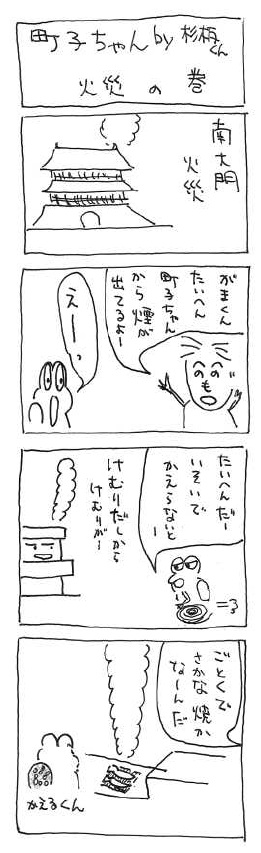 町子ちゃん by 杉板くん
火災の巻
南大門
火災
がまくん
たいへん
町子ちゃん
から煙が
出てるよー
えーっ
へのへのもじ
たいへんだー
いそいで
かえらないと
ー
けむりだしから
けむりがー
=3
ごとくで
さかな焼か
なーんだ
かえるくん